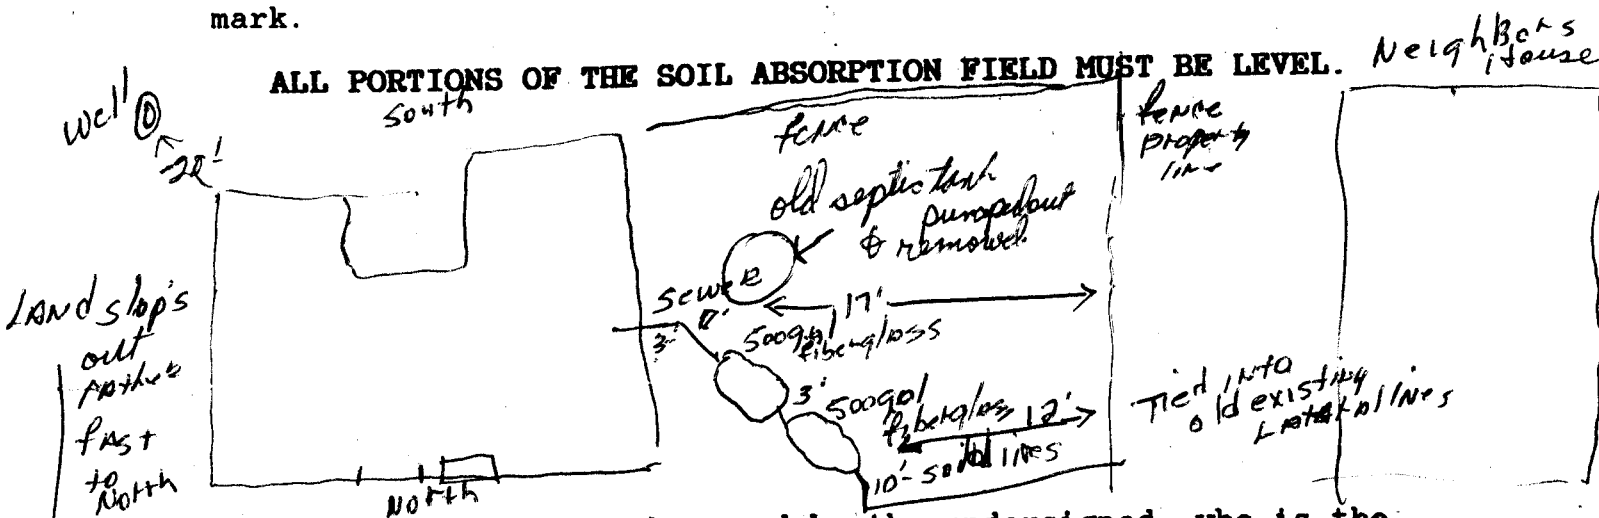 mark.
ALL PORTIONS OF THE SOIL ABSORPTION FIELD MUST BE LEVEL.
Neighbors
House
Well
20'
South
fence
fence
property
line
old septic tank
pumped out
& removed
Land slop's
out
rather
fast
to
North
Sewer
3'
17'
500gal
fiberglass
3'
500gal
fiberglass 12'
10'- solid lines
Tied into
old existing
Lateral lines
North
undersigned, who is the